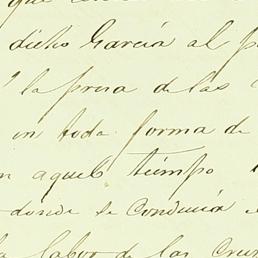 que
dicho García al
la presa de las
en toda forma de
aquel tiempo
donde se conducía
labor de las